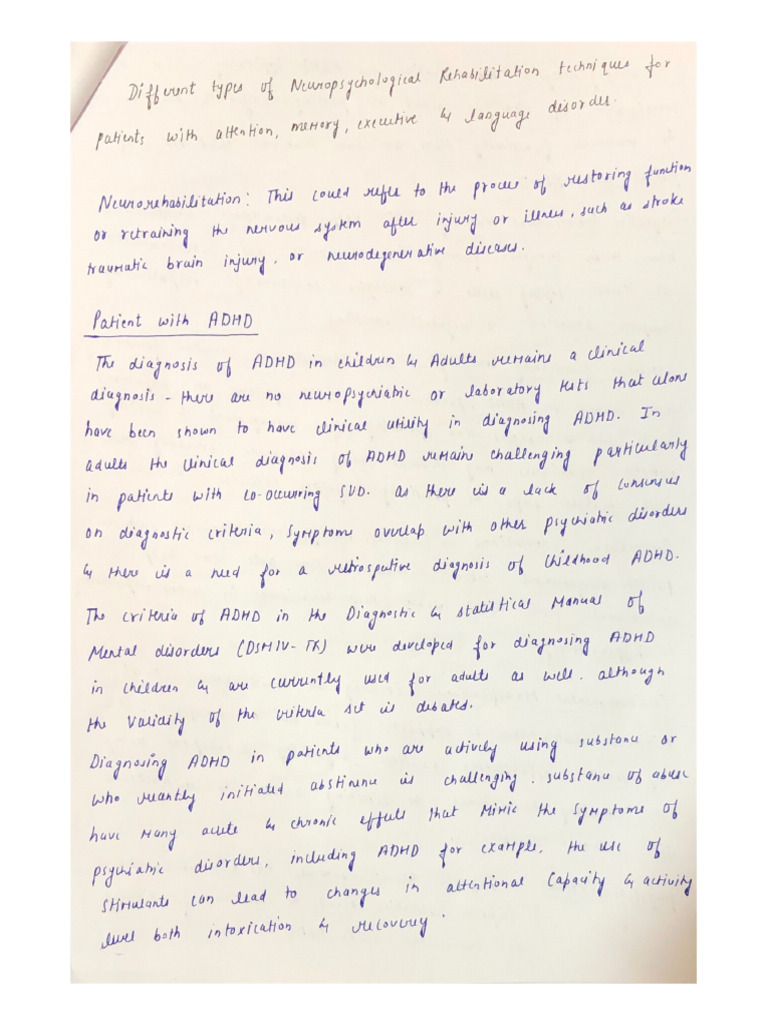 Different types of Neuropsychological Rehabilitation techniques for
patients with attention, memory, executive & language disorder.
Neurorehabilitation: This could refer to the process of restoring function
or retraining the nervous system after injury or illness, such as stroke
traumatic brain injury, or neurodegenerative diseases.
Patient with ADHD
The diagnosis of ADHD in children & Adults remains a clinical
diagnosis - there are no neuropsychiatric or laboratory tests that alone
have been shown to have clinical utility in diagnosing ADHD. In
adults the clinical diagnosis of ADHD remains challenging particularly
in patients with co-occurring SUD. as there is a lack of consensus
on diagnostic criteria, symptoms overlap with other psychiatric disorders
& there is a need for a retrospective diagnosis of childhood ADHD.
The criteria of ADHD in the Diagnostic & statistical Manual of
Mental disorders (DSM IV-TR) were developed for diagnosing ADHD
in children & are currently used for adults as well. although
the validity of the criteria set is debates.
Diagnosing ADHD in patients who are actively using substance or
who recently initiated abstinence is challenging. substance of abuse
have many acute & chronic effects that mimic the symptoms of
psychiatric disorders, including ADHD for example, the use of
stimulants can lead to changes in attentional capacity & activity
level both intoxication & recoverey.